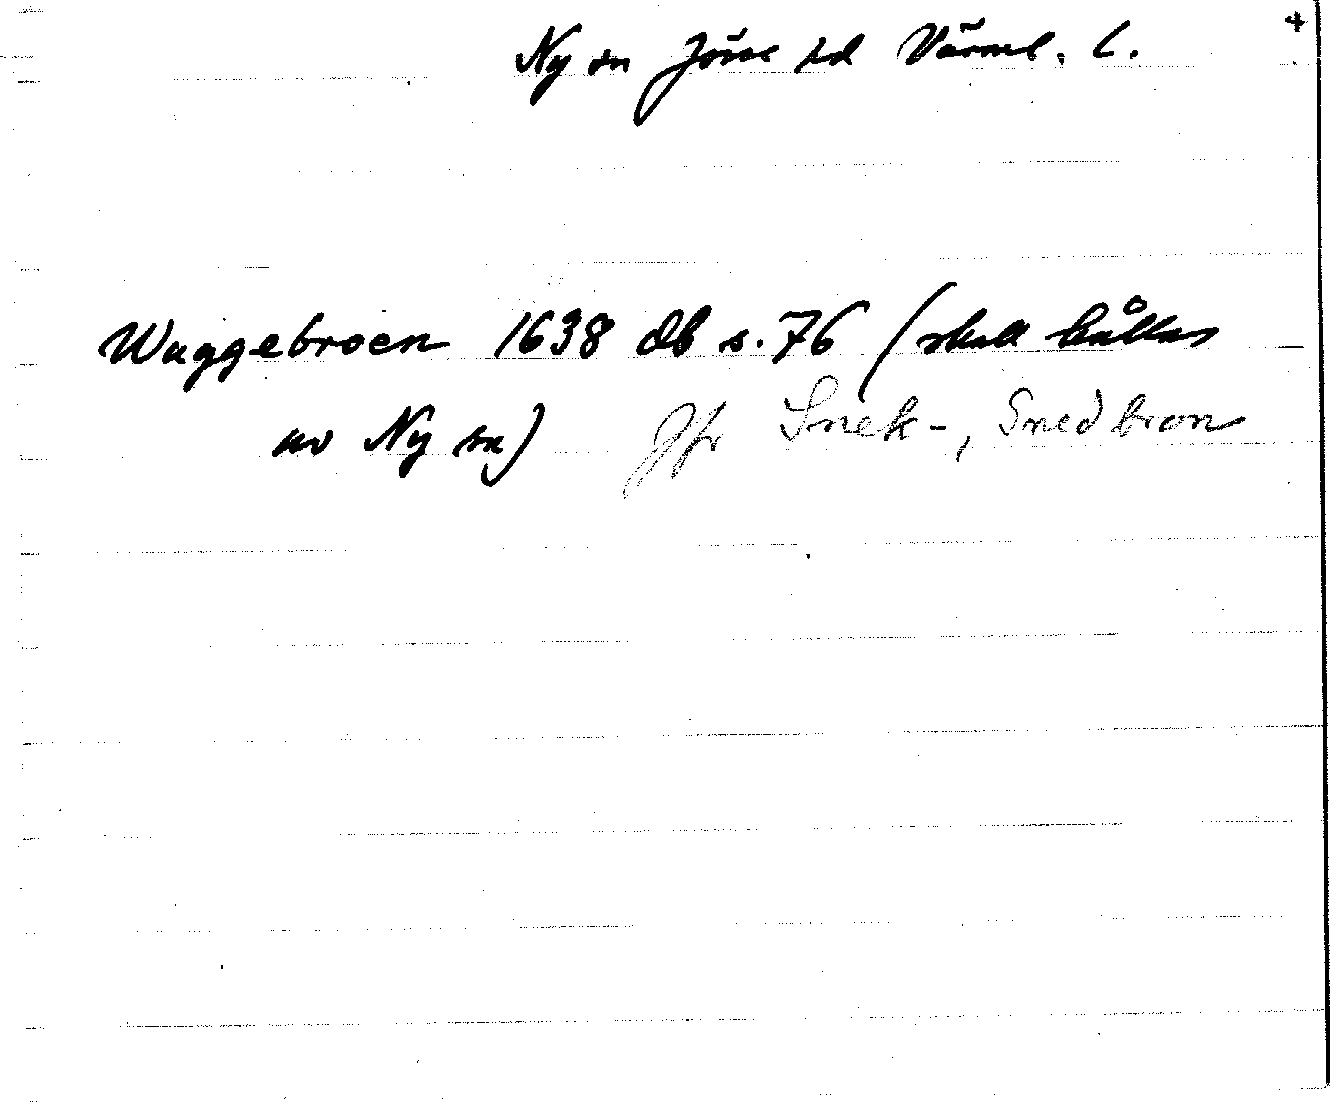 Ny sn Jösse hd Värml. l. +
Waggebroen 1638 db s. 76 (skall hållas
av Ny sn) Jfr Snek-, Snedbron